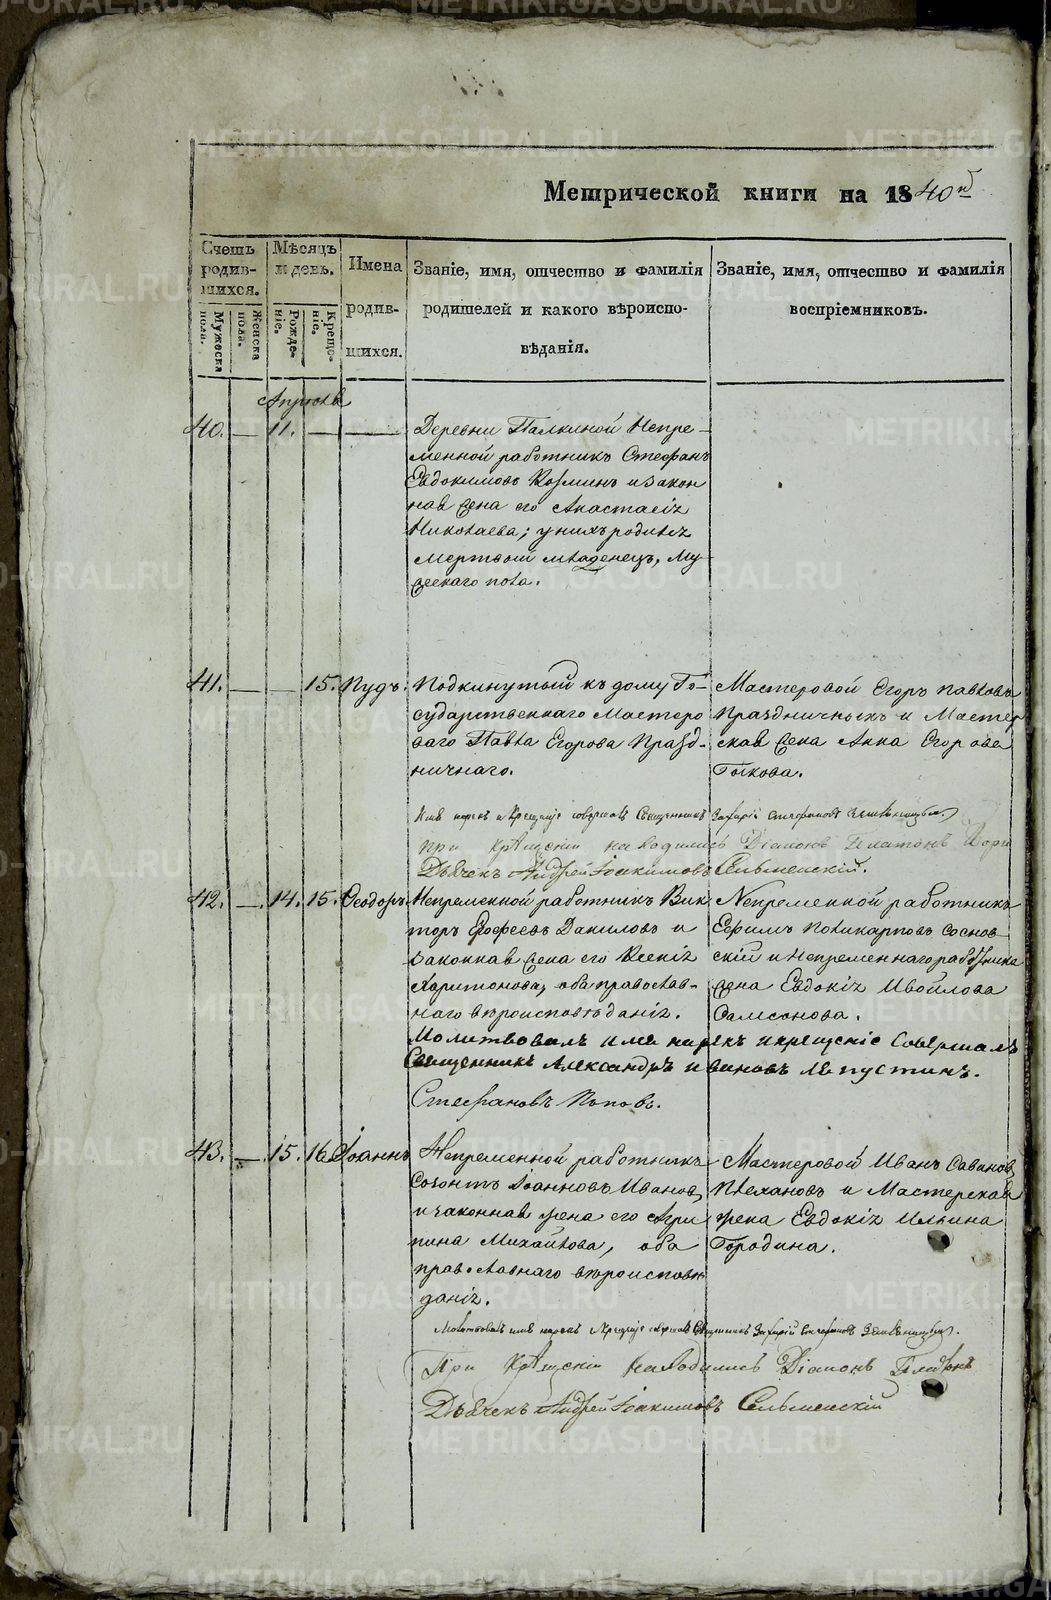 Метрической книги на 1840й
Счетъ родив-шихся.
Мужеска пола.
Женска пола.
Мѣсяцъ и день.
Рожде-ніе.
Креще-ніе.
Имена родив-шихся.
Званіе, имя, отчество и фамилія
родителей и какого вѣроиспо-
вѣданія.
Званіе, имя, отчество и фамилія
воспріемниковъ.
Апрѣля
40. — 11. — —
Деревни Палкиной Непре-
менной работникъ Стефанъ
Евдокимовъ Козминъ и закон
ная жена его Анастасія
Николаева; у нихъ родился
мертвый младенецъ, му-
жескаго пола.
41. — — 15. Пудъ.
Подкинутый къ дому Го-
сударственнаго Мастеро
ваго Павла Егорова Празд-
ничнаго.
Мастеровой Егоръ Павловъ
Праздничныхъ и Мастер
ская жена Анна Егорова
Гонкова.
Имя нарекъ и Крещеніе совершалъ Священникъ Захарій Стефановъ
при крещеніи находились Діаконъ Платонъ
Дьячекъ Андрей Іоакимовъ Сельменскій.
42. — 14. 15. Ѳеодоръ
Непременной работникъ Вик
торъ Ерофеевъ Даниловъ и
законная жена его Ксенія
Харитонова, оба православ-
наго вѣроисповѣданія.
Непременной работникъ
Ефимъ Поликарповъ Соснов-
скій и Непременнаго работника
жена Евдокія Ивойлова
Самсонова.
Молитвовалъ имя нарекъ и крещеніе Совершалъ
Священникъ Александръ Ивановъ Лепустинъ.
Стефановъ Поповъ.
43. — 15. 16. Іоаннъ
Непременной работникъ
Созонтъ Іоанновъ Ивановъ
и законная жена его Агри
пина Михайлова, оба
православнаго вѣроисповѣ
данія.
Мастеровой Иванъ Савиновъ
Плехановъ и Мастерская
жена Евдокія Ильина
Городина.
Молитвовалъ имя нарекъ и Крещеніе совершалъ Священникъ Захарій Стефановъ
При крещеніи находились Діаконъ Платонъ
Дьячекъ Андрей Іоакимовъ Сельменскій
METRIKI.GASO-URAL.RU